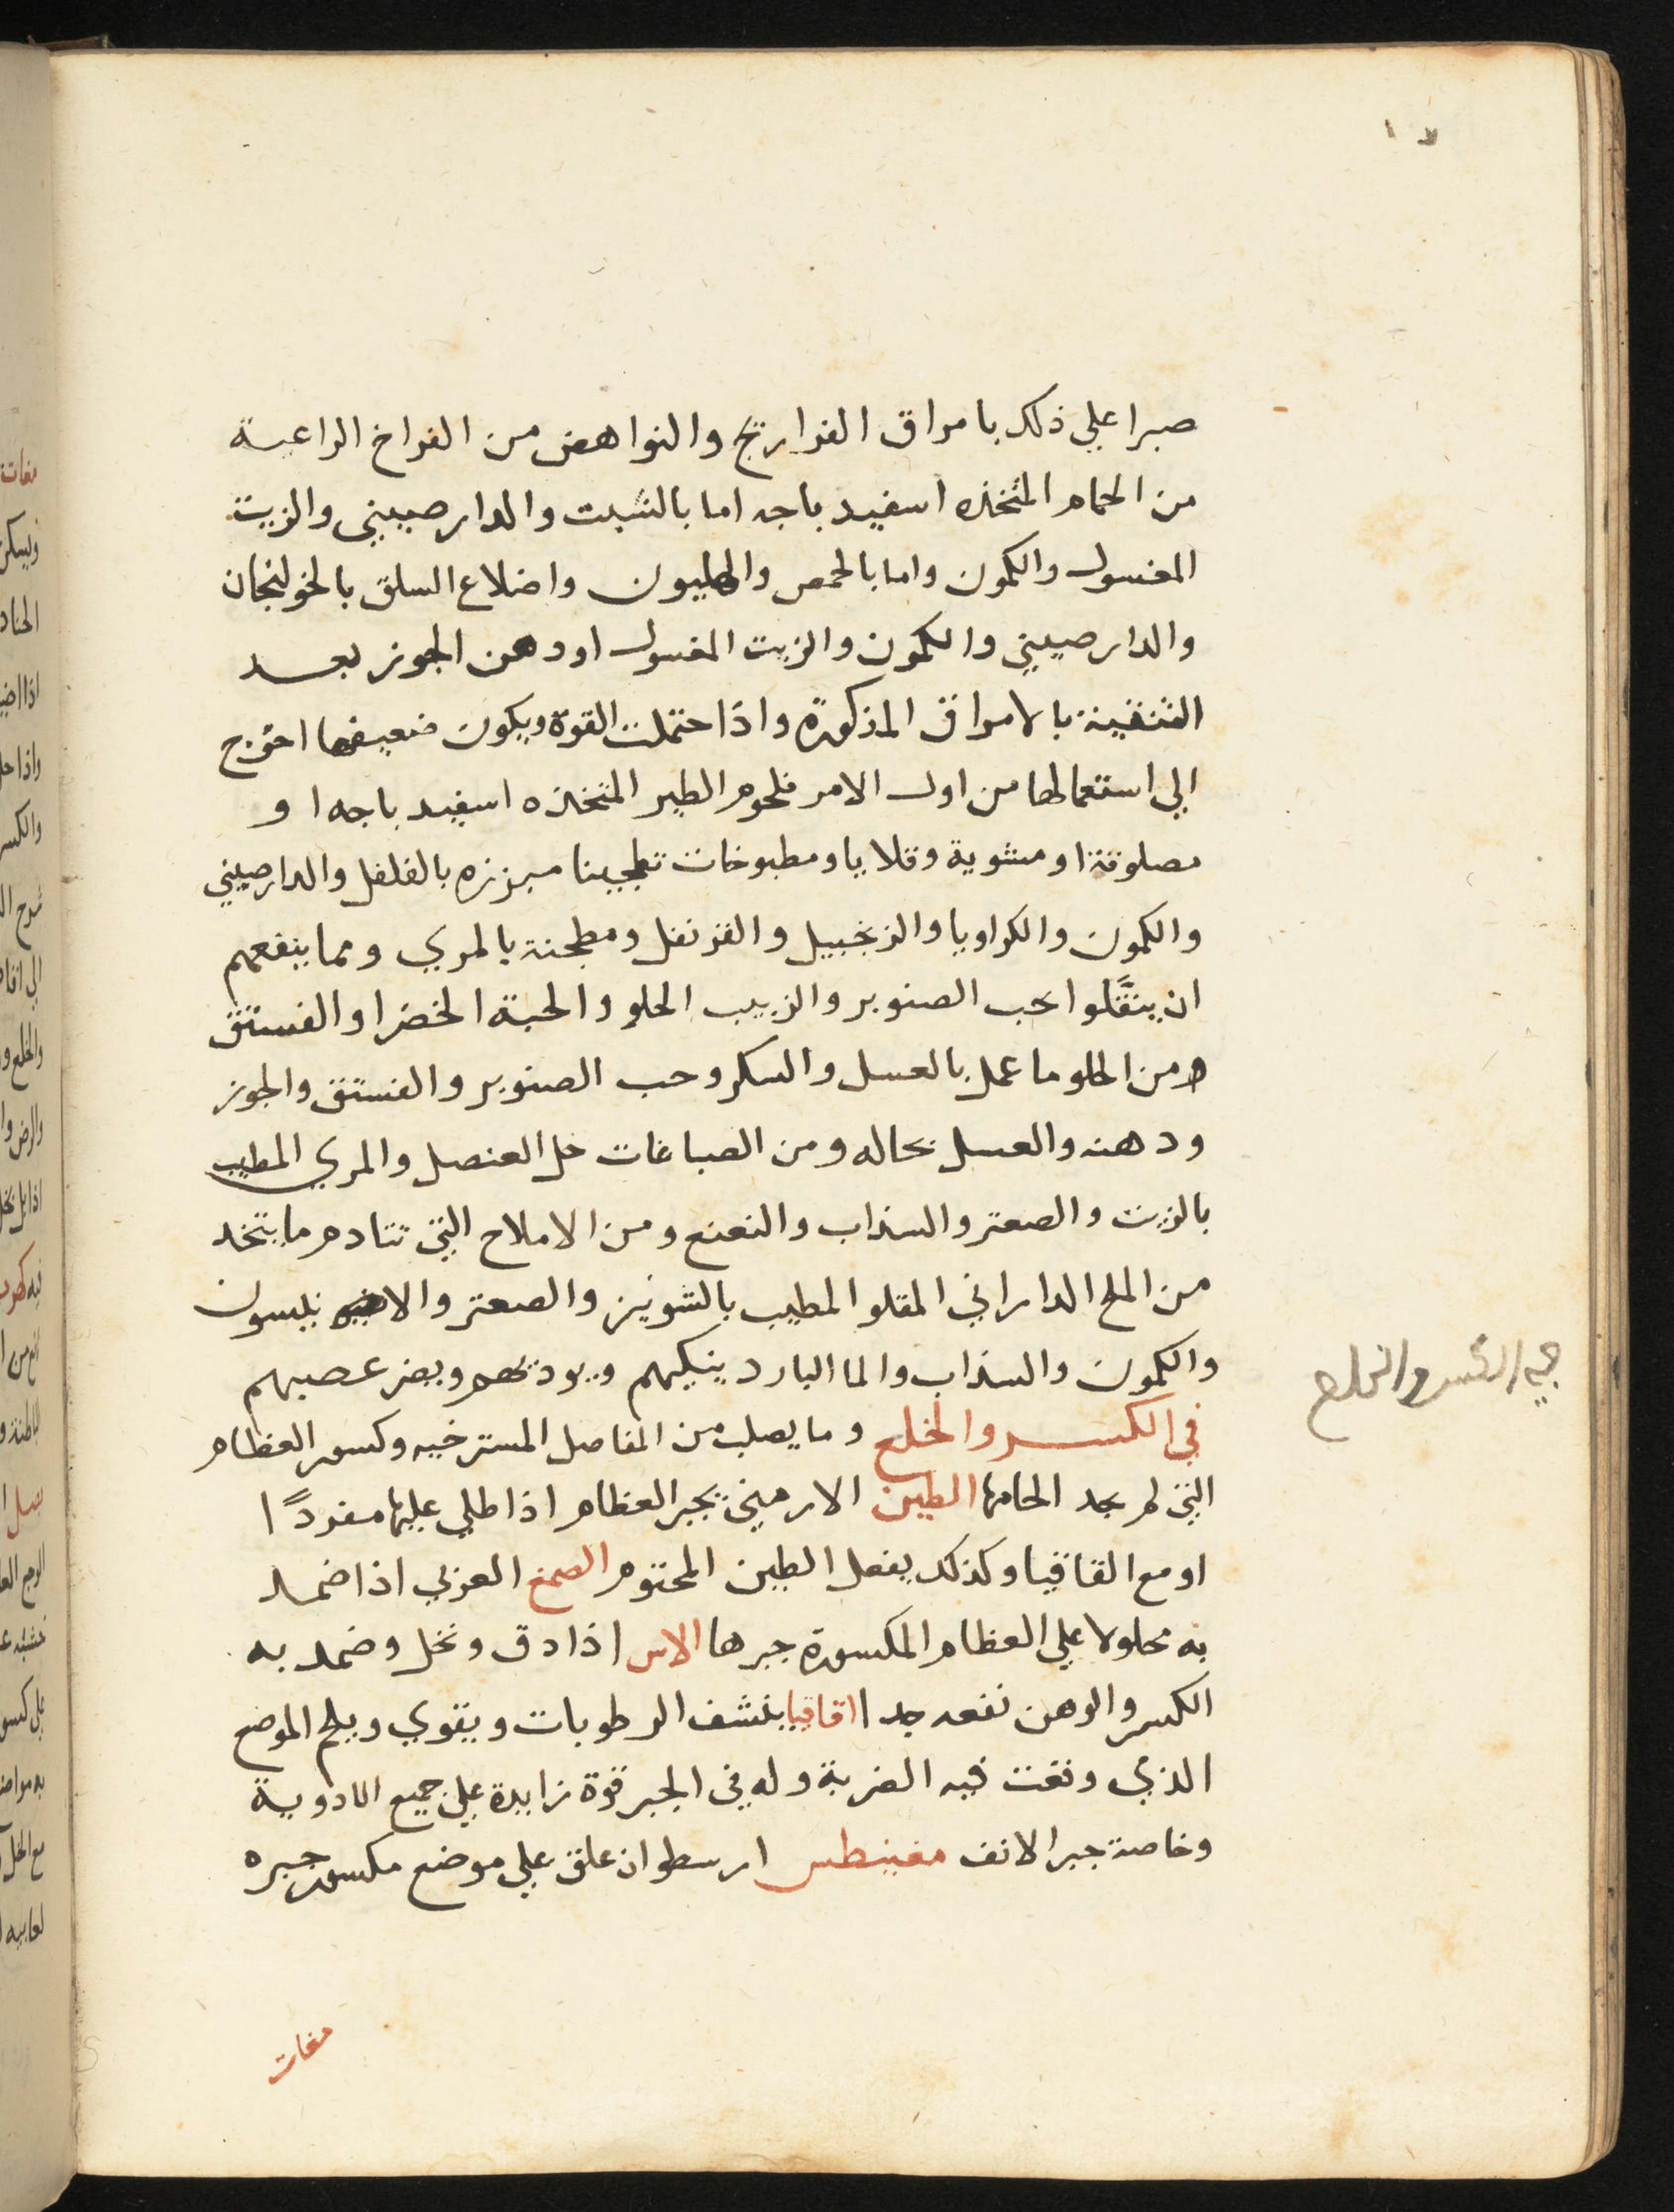 صبرا علي ذلك بامراق الفراريج والنواهض من الفراخ الراعية
من الحمام المتخذه اسفيد باجه اما بالشبت والدارصيني والزيت
المغسول والكمون واما بالحمص والهليون واضلاع السلق بالخولنجان
والدارصيني والكمون والزيت المغسول او دهن الجوز بعد
التنقية بالامراق المذكورة واذا احتملت القوة ويكون ضعيفها احوج
الي استعمالها من اول الامر فلحوم الطير المتخذه اسفيد باجه او
مصلوقة او مشوية وقلايا ومطبوخات تطجينا مبزره بالفلفل والدارصيني
والكمون والكراويا والزنجبيل والقرنفل ومطجنة بالمري ومما ينفعهم
ان ينقَّلوا بحب الصنوبر والزبيب الحلو والحبة الخضرا والفستق
ومن الحلو ما عمل بالعسل والسكر وحب الصنوبر والفستق والجوز
ودهنه والعسل بحاله ومن الصباغات خل العنصل والمري المطيب
بالزيت والصعتر والسذاب والنعنع ومن الاملاح التي تتادم ما يتخد
من الملح الداراني المقلو المطيب بالشونيز والصعتر والانيسون
والكمون والسذاب والما البارد ينكيهم ويوديهم ويضر عصبهم
في الكسر والخلع وما يصلب من المفاصل المسترخيه وكسور العظام
التي لم يجد الحامها الطين الارميني يجبر العظام اذا طلي عليها مفردًا
او مع القاقيا وكذلك يفعل الطين المختوم الصمغ العربي اذا ضمد
به محلولا علي العظام المكسورة جبرها الاس اذا دق ونخل وضمد به
الكسر والوهن نفعه جدا اقاقيا ينشف الرطوبات ويقوي ويلحم الموضع
الذي وقعت فيه الضربة وله في الجبر قوة زايدة علي جميع الادوية
وخاصة جبر الانف مغنيطس ارسطو ان علق علي موضع مكسور جبره
مغاث
في الكسر والخلع